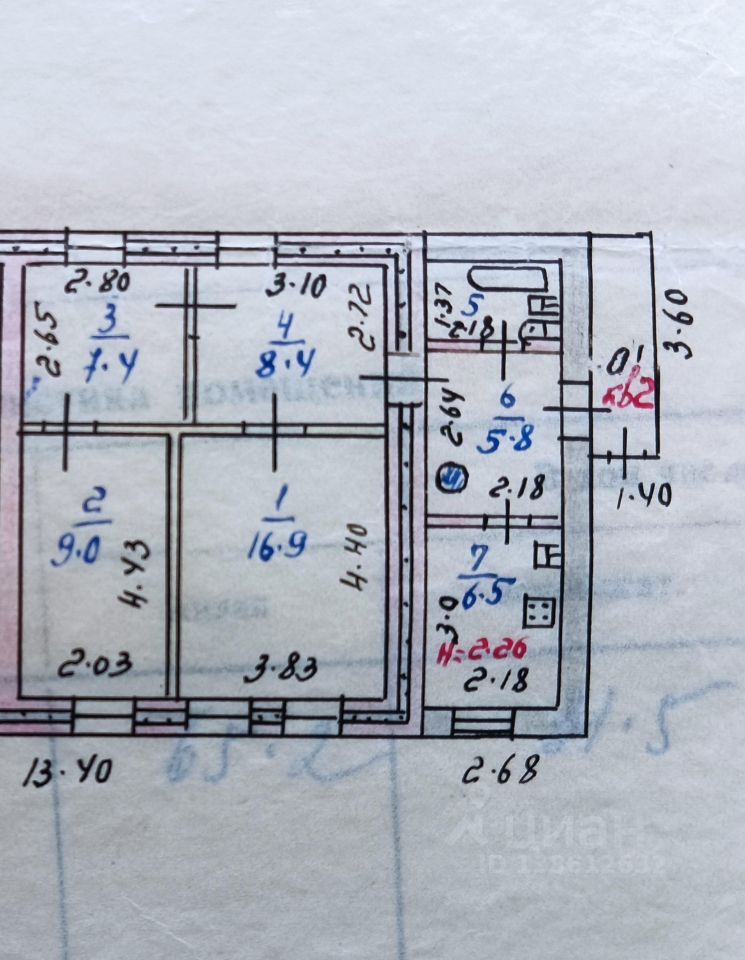 2.80
3.10
2.65
3
7.4
4
8.4
2.72
1.37
5
2.18
3.60
6
5.8
2.64
2.18
кв2
1.40
2
9.0
4.43
2.03
1
16.9
4.40
3.83
7
6.5
3.0
H=2.26
2.18
13.40
2.68
циан